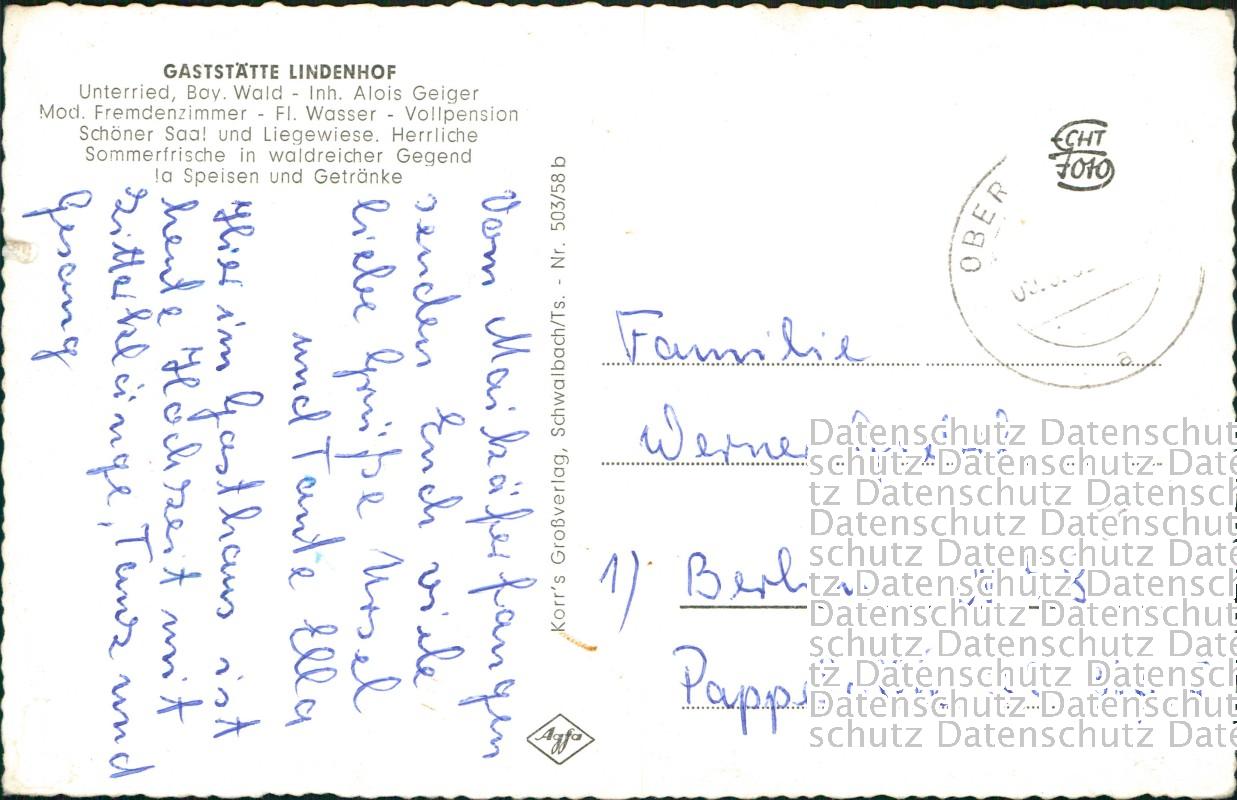 GASTSTÄTTE LINDENHOF
Unterried, Bay. Wald - Inh. Alois Geiger
Mod. Fremdenzimmer - Fl. Wasser - Vollpension
Schöner Saal und Liegewiese. Herrliche
Sommerfrische in waldreicher Gegend
Ia Speisen und Getränke
Vom Maikäferfangen
senden Euch viele
liebe Grüße Ursel
und Tante Ella
Hier im Gasthaus ist
heute Hochzeit mit
Zitterklänge, Tanz und
Gesang
Korr's Großverlag, Schwalbach/Ts. - Nr. 503/58b
Agfa
ECHT
FOTO
OBER
a
Familie
Werner
1) Berlin
Datenschutz Datenschut
schutz Datenschutz Date
tz Datenschutz Datensch
Datenschutz Datenschut
schutz Datenschutz Date
tz Datenschutz Datensch
Datenschutz Datenschut
schutz Datenschutz Date
tz Datenschutz Datensch
Datenschutz Datenschut
schutz Datenschutz Date